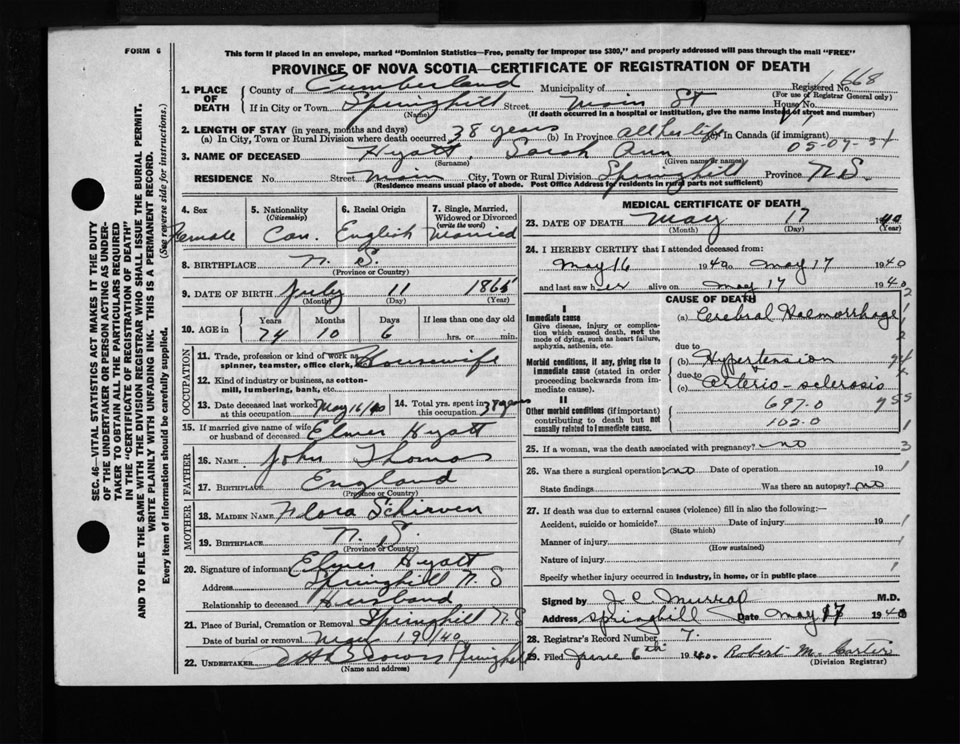 FORM 6
This form if placed in an envelope, marked "Dominion Statistics—Free, penalty for improper use $300," and properly addressed will pass through the mail "FREE"
PROVINCE OF NOVA SCOTIA—CERTIFICATE OF REGISTRATION OF DEATH
SEC. 46—VITAL STATISTICS ACT MAKES IT THE DUTY
OF THE UNDERTAKER OR PERSON ACTING AS UNDER-
TAKER TO OBTAIN ALL THE PARTICULARS REQUIRED
IN THE "CERTIFICATE OF REGISTRATION OF DEATH"
AND TO FILE THE SAME WITH THE DIVISION REGISTRAR WHO SHALL ISSUE THE BURIAL PERMIT.
WRITE PLAINLY WITH UNFADING INK. THIS IS A PERMANENT RECORD.
Every item of information should be carefully supplied. (See reverse side for instructions.)
1. PLACE OF DEATH
County of Cumberland Municipality of Registered No. 1668
(For use of Registrar General only)
If in City or Town Springhill Street Main St House No.
(Name) (If death occurred in a hospital or institution, give the name instead of street and number)
2. LENGTH OF STAY (in years, months and days)
(a) In City, Town or Rural Division where death occurred 38 years (b) In Province all her life (c) In Canada (if immigrant)
05-09-31
3. NAME OF DECEASED Hyatt, Sarah Ann
(Surname) (Given name or names)
RESIDENCE No. Street Main City, Town or Rural Division Springhill Province N.S.
(Residence means usual place of abode. Post Office Address for residents in rural parts not sufficient)
4. Sex 5. Nationality (Citizenship) 6. Racial Origin 7. Single, Married, Widowed or Divorced (write the word)
Female Can. English Married
8. BIRTHPLACE N. S.
(Province or Country)
9. DATE OF BIRTH July 11 1865
(Month) (Day) (Year)
10. AGE in Years Months Days If less than one day old
74 10 6 hrs. or min.
OCCUPATION
11. Trade, profession or kind of work as spinner, teamster, office clerk, Housewife
12. Kind of industry or business, as cotton-mill, lumbering, bank, etc.
13. Date deceased last worked at this occupation May 16/40 14. Total yrs. spent in this occupation 38 years
15. If married give name of wife or husband of deceased Elmer Hyatt
FATHER
16. NAME John Thomas
17. BIRTHPLACE England
(Province or Country)
MOTHER
18. MAIDEN NAME Flora Schirven
19. BIRTHPLACE N. S.
(Province or Country)
20. Signature of informant Elmer Hyatt
Address Springhill N. S
Relationship to deceased Husband
21. Place of Burial, Cremation or Removal Springhill N. S
Date of burial or removal May 19/40
22. UNDERTAKER Brown Springhill
(Name and address)
MEDICAL CERTIFICATE OF DEATH
23. DATE OF DEATH May 17 1940
(Month) (Day) (Year)
24. I HEREBY CERTIFY that I attended deceased from:
May 16 1940 to May 17 1940
and last saw her alive on May 17 1940
CAUSE OF DEATH
I
Immediate cause
Give disease, injury or complication which caused death, not the mode of dying, such as heart failure, asphyxia, asthenia, etc.
(a) Cerebral Haemorrhage
due to
Morbid conditions, if any, giving rise to immediate cause (stated in order proceeding backwards from immediate cause).
(b) Hypertension
due to
(c) Arterio-sclerosis
II
Other morbid conditions (if important) contributing to death but not causally related to immediate cause.
697.0
102.0
25. If a woman, was the death associated with pregnancy? no
26. Was there a surgical operation? no Date of operation 19
State findings Was there an autopsy? no
27. If death was due to external causes (violence) fill in also the following:—
Accident, suicide or homicide? Date of injury 19
(State which)
Manner of injury
(How sustained)
Nature of injury
Specify whether injury occurred in industry, in home, or in public place
Signed by J. C. Murray M.D.
Address Springhill Date May 17 1940
28. Registrar's Record Number 7.
29. Filed June 6th 1940. Robert M. Carter
(Division Registrar)